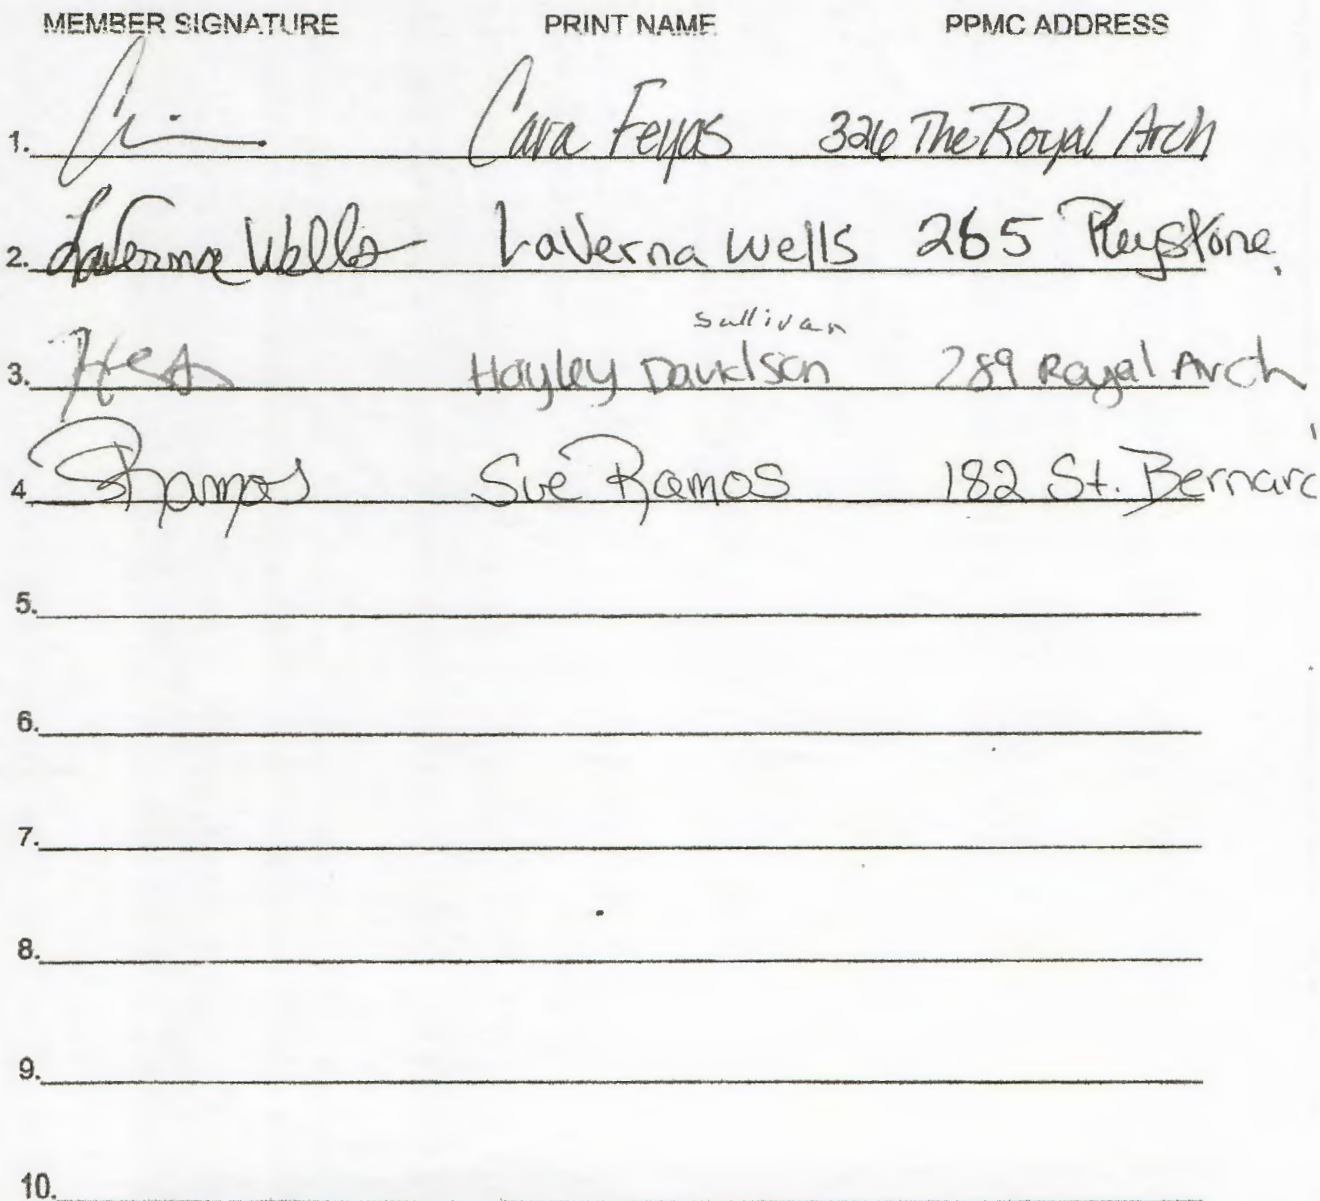 MEMBER SIGNATURE PRINT NAME PPMC ADDRESS
1. Cara Feyas 326 The Royal Arch
2. LaVerna Wells LaVerna Wells 265 Keystone
Sullivan
3. Hayley Davidson 289 Royal Arch
4. SRamos Sue Ramos 182 St. Bernard
5.
6.
7.
8.
9.
10.